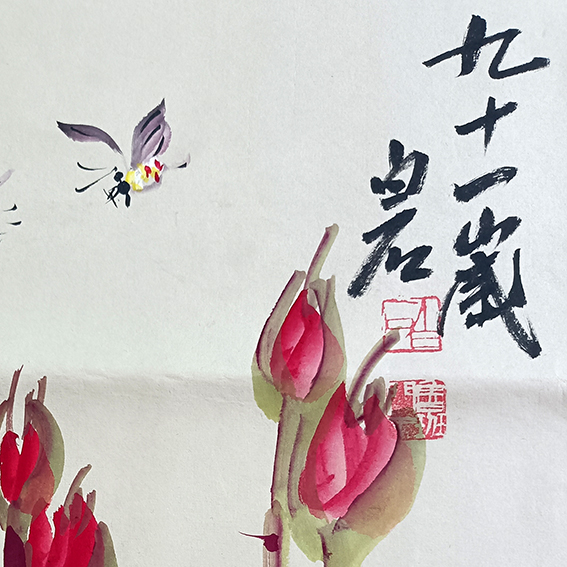 九十一歲
白石